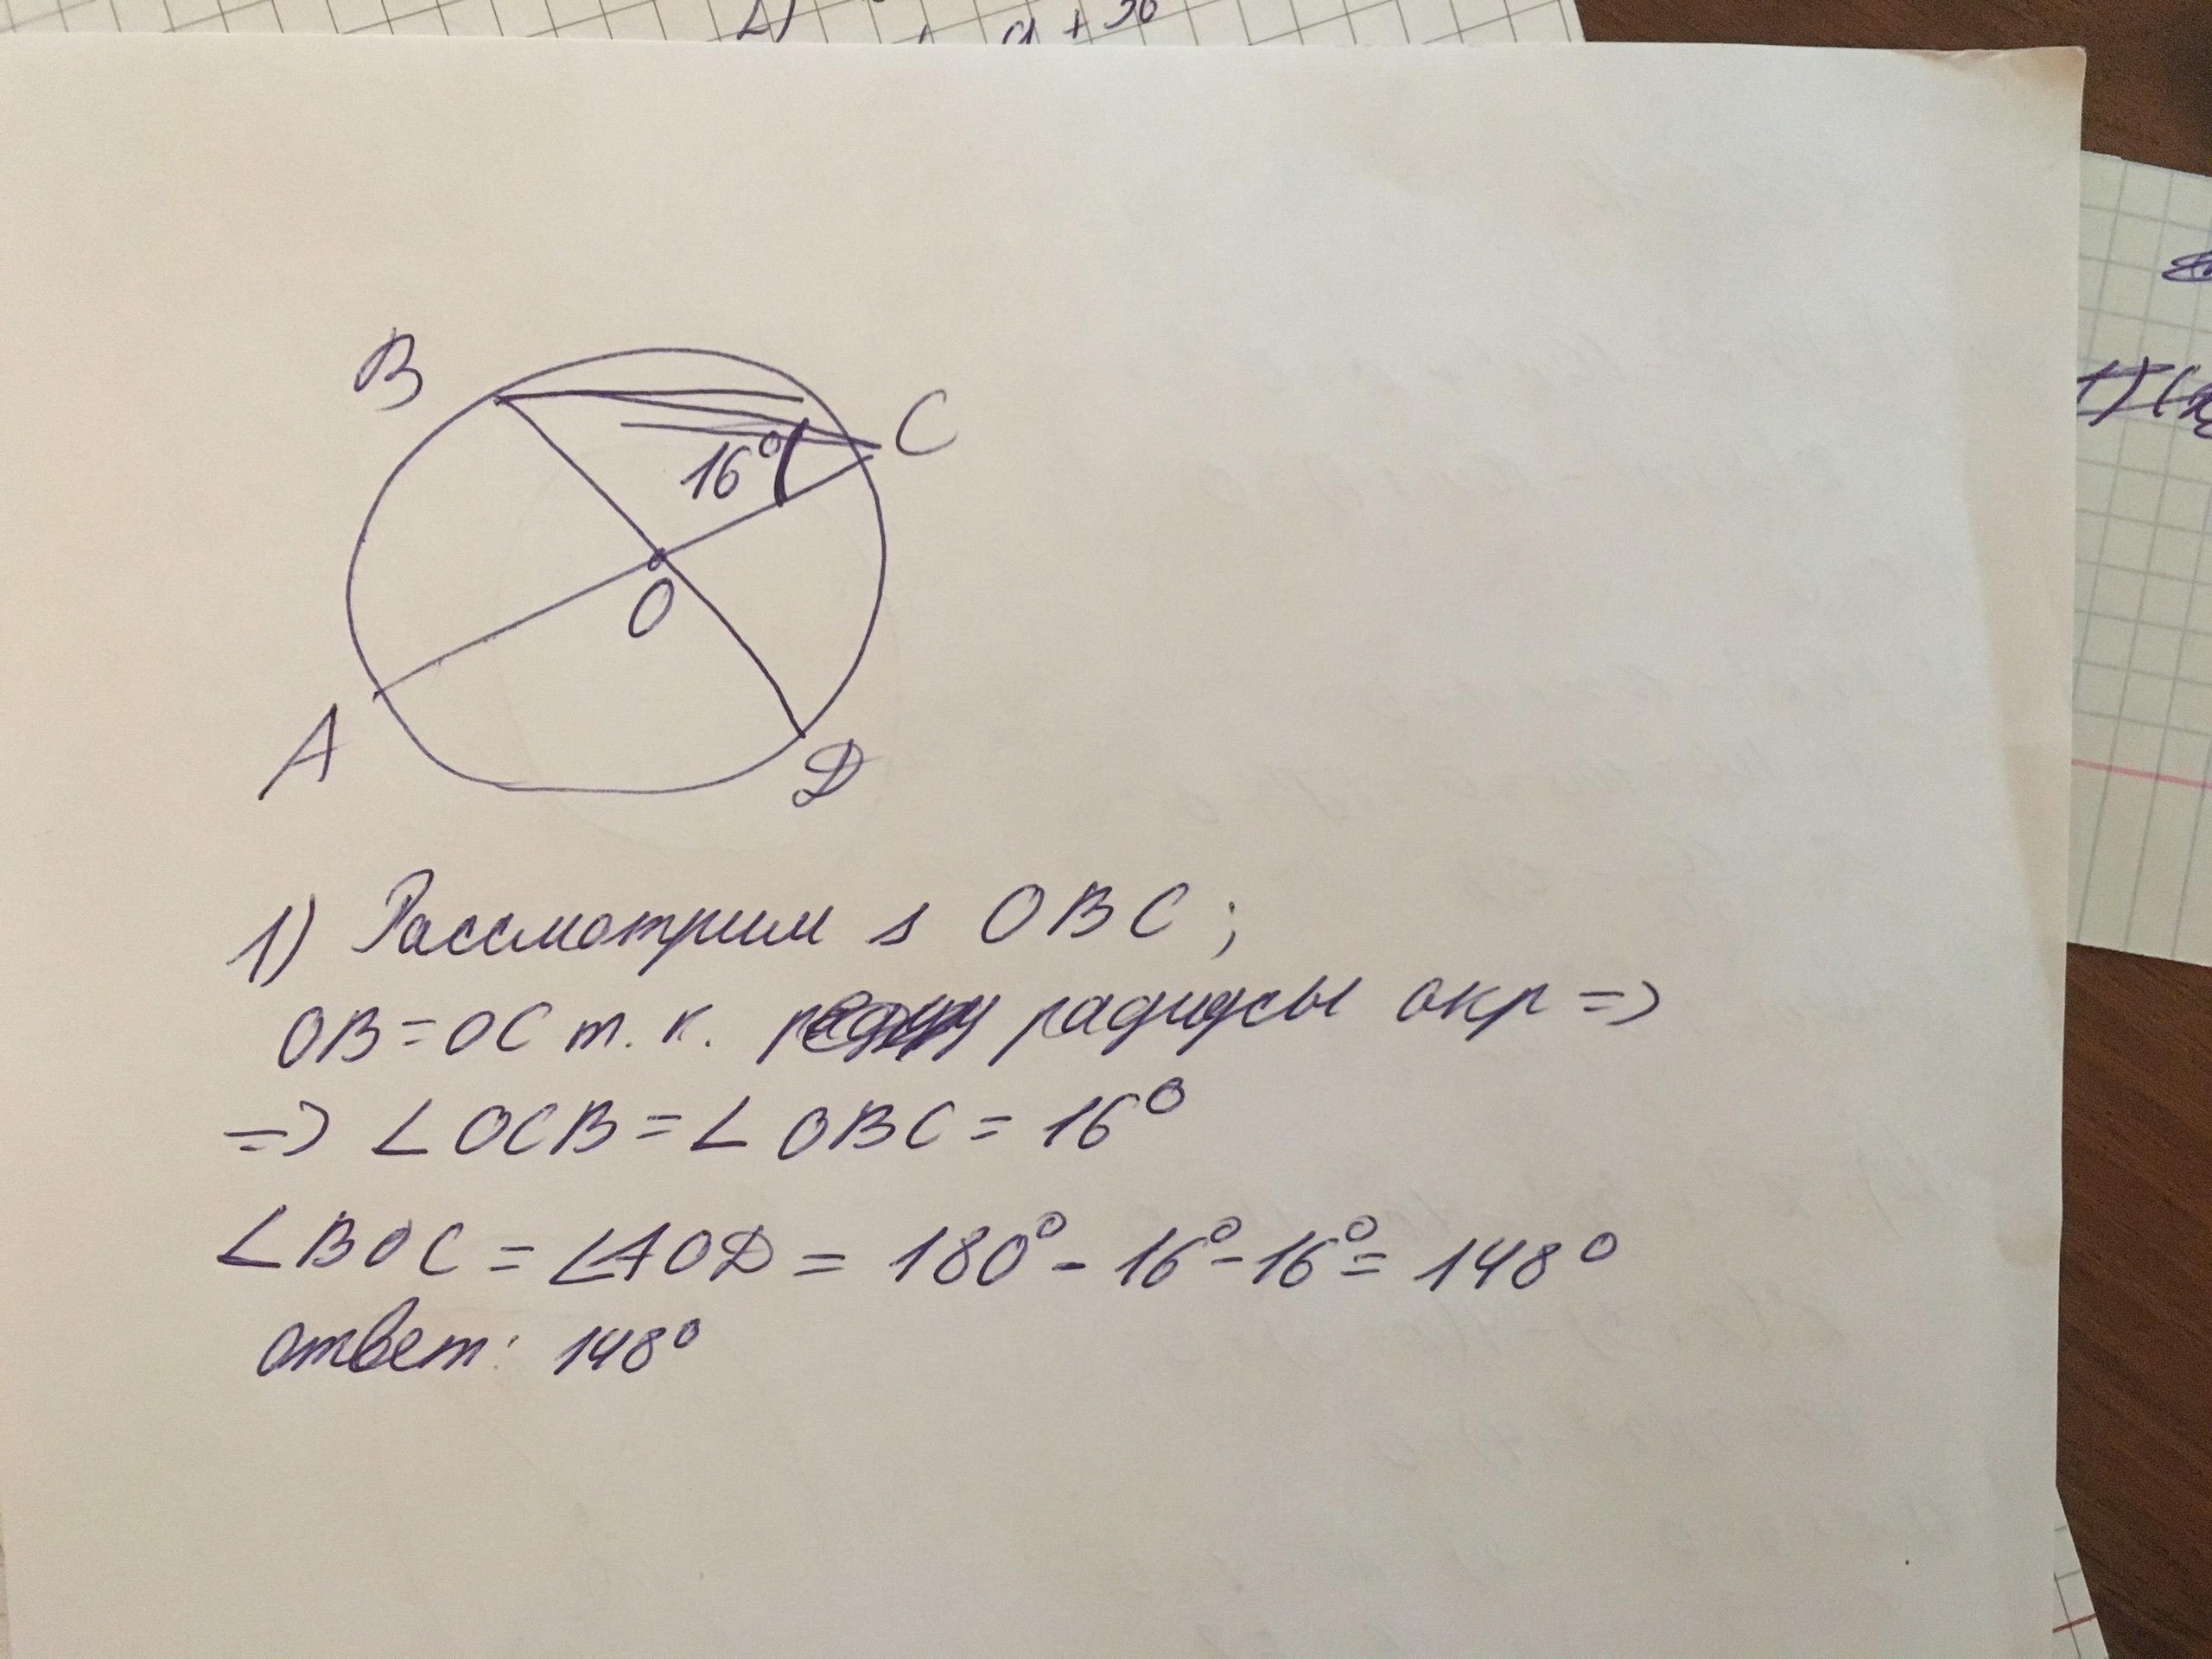 а + 36
B
C
16°
O
A
D
1) (
1) Рассмотрим ▵ OBC;
OB = OC т. к. радиусы окр =>
=> ∠ OCB = ∠ OBC = 16°
∠ BOC = ∠AOD = 180° - 16° - 16° = 148°
ответ: 148°